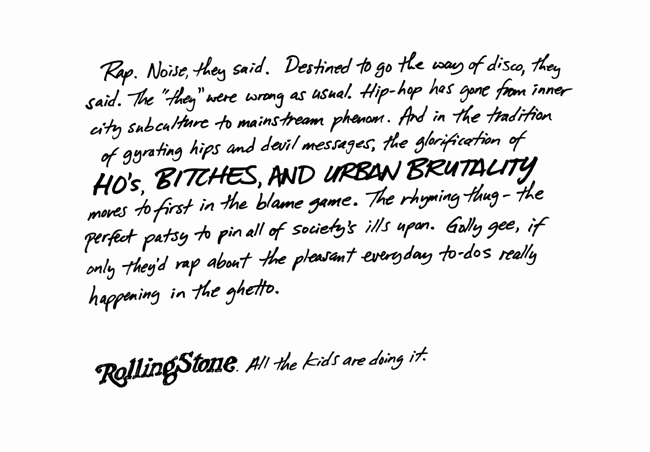 Rap. Noise, they said. Destined to go the way of disco, they
said. The "they" were wrong as usual. Hip-hop has gone from inner
city subculture to mainstream phenom. And in the tradition
of gyrating hips and devil messages, the glorification of
HO's, BITCHES, AND URBAN BRUTALITY
moves to first in the blame game. The rhyming thug - the
perfect patsy to pin all of society's ills upon. Golly gee, if
only they'd rap about the pleasant everyday to-dos really
happening in the ghetto.
RollingStone. All the kids are doing it.